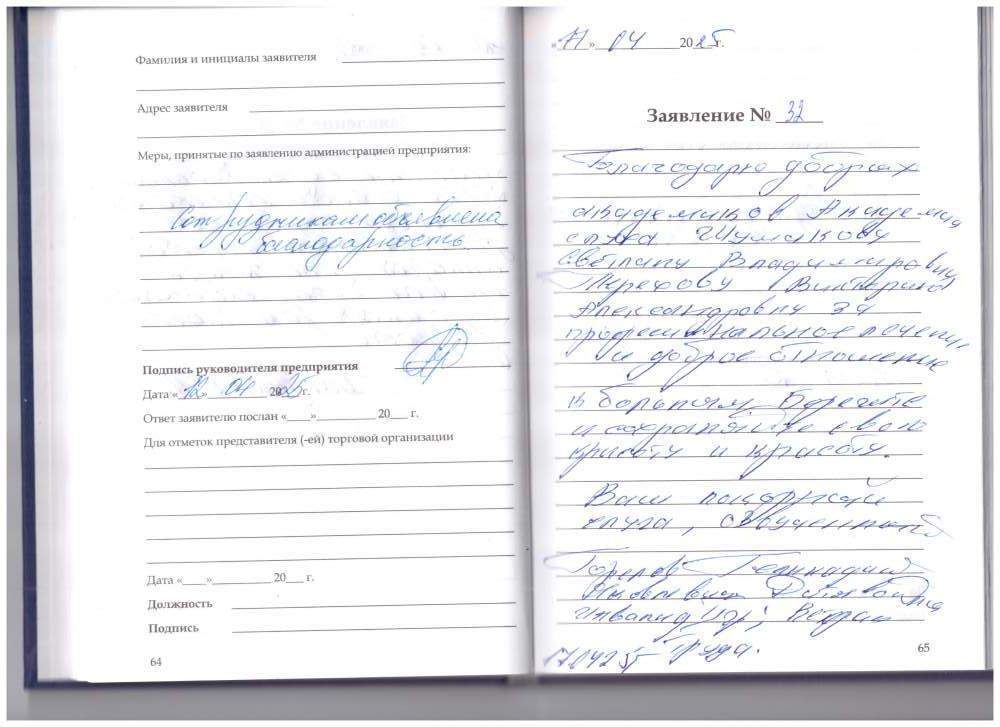 Фамилия и инициалы заявителя
Адрес заявителя
Меры, принятые по заявлению администрацией предприятия:
Сотрудникам объявлена
благодарность
Подпись руководителя предприятия
Дата « 12 » 04 2025 г.
Ответ заявителю послан «___» ________ 20___ г.
Для отметок представителя (-ей) торговой организации
Дата «____»__________ 20___ г.
Должность
Подпись
64
« 11 » 04 2025 г.
Заявление № 32
Благодарю добрых
академиков Академии
слуха Шумакову
Светлану Владимировну
Терехову Викторию
Александровну за
лечение
и доброе отношение
к больным Берегите
и сохраняйте свою
красоту и красоту.
Ваш покорный
слуга,
Горелов Геннадий
инвалид Ветеран
Труда.
65